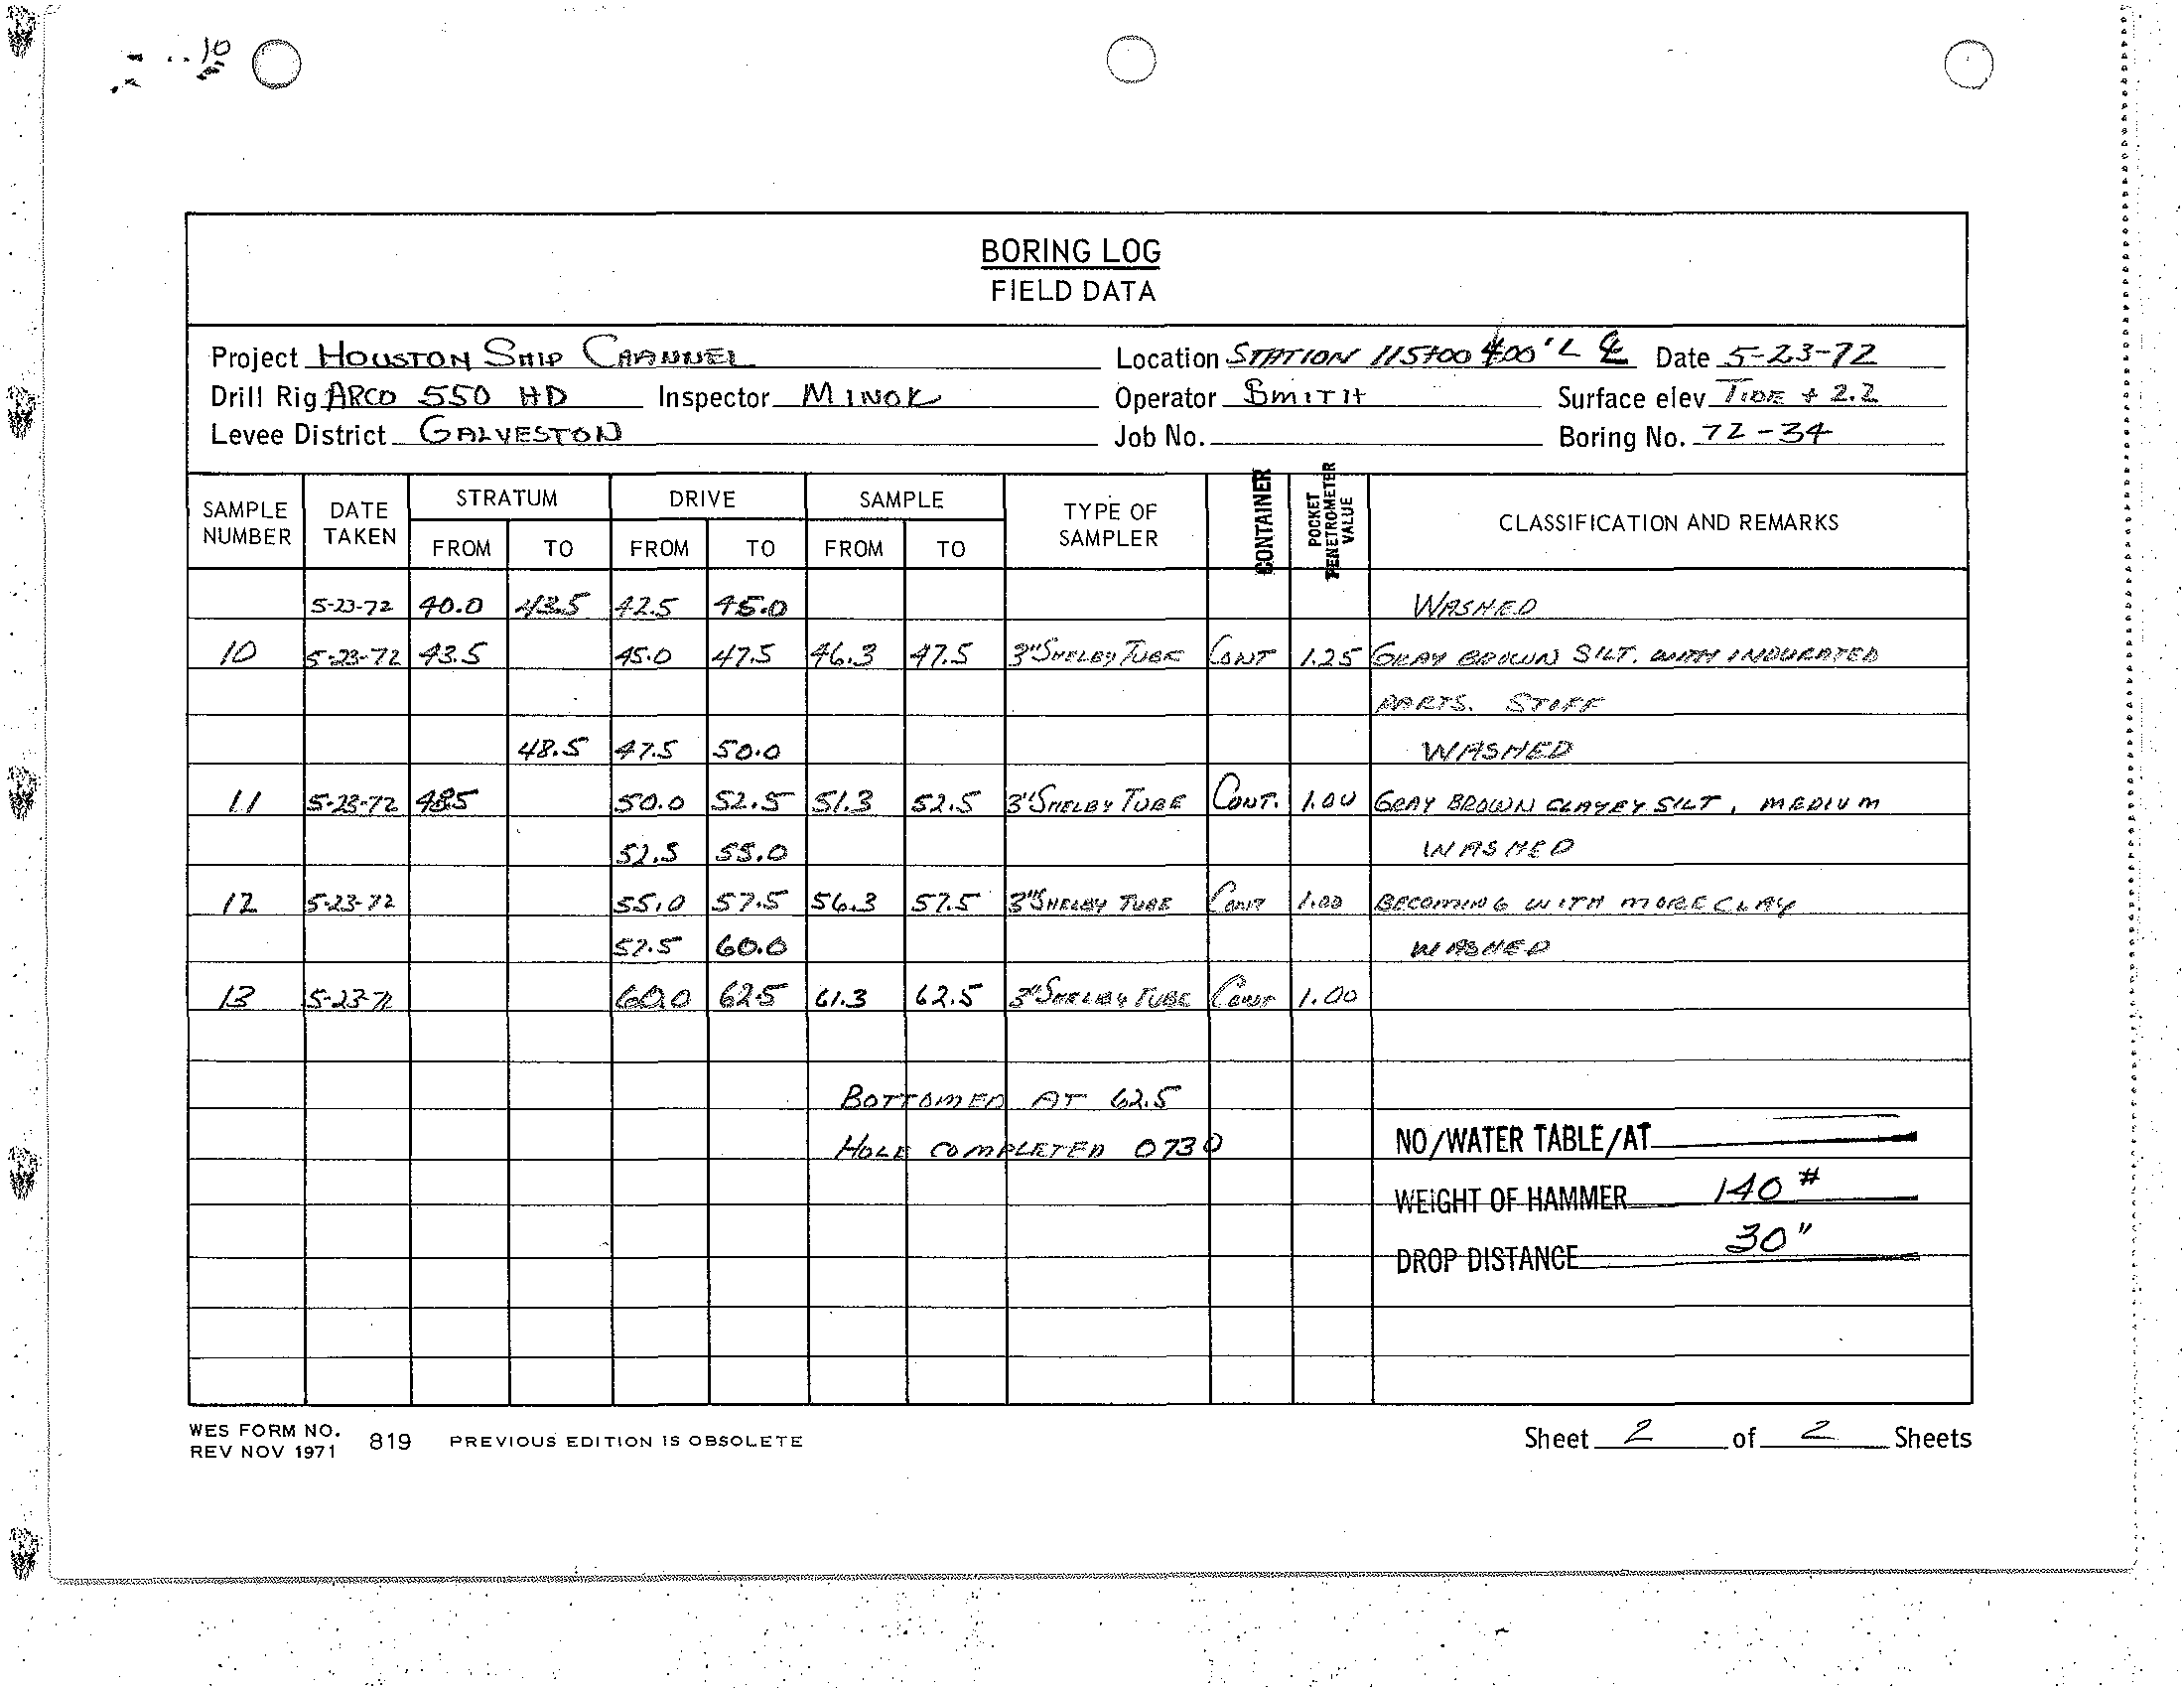 10
BORING LOG
FIELD DATA
Project HOUSTON SHIP CHANNEL Location STATION 115+00 400'L ℄ Date 5-23-72
Drill Rig ARCO 550 HD Inspector MINOK Operator SMITH Surface elev TIDE + 2.2
Levee District GALVESTON Job No. Boring No. 72-34
SAMPLE NUMBER DATE TAKEN STRATUM FROM TO DRIVE FROM TO SAMPLE FROM TO TYPE OF SAMPLER CONTAINER POCKET PENETROMETER VALUE CLASSIFICATION AND REMARKS
5-23-72 40.0 43.5 42.5 45.0 WASHED
10 5-23-72 43.5 45.0 47.5 46.3 47.5 3"SHELBY TUBE CONT 1.25 GRAY BROWN SILT. WITH INDURATED
PARTS. STIFF
48.5 47.5 50.0 WASHED
11 5-23-72 48.5 50.0 52.5 51.3 52.5 3"SHELBY TUBE CONT. 1.00 GRAY BROWN CLAYEY SILT, MEDIUM
52.5 55.0 WASHED
12 5-23-72 55.0 57.5 56.3 57.5 3"SHELBY TUBE CONT 1.00 BECOMING WITH MORE CLAY
57.5 60.0 WASHED
13 5-23-72 60.0 62.5 61.3 62.5 3"SHELBY TUBE CONT 1.00
BOTTOMED AT 62.5
HOLE COMPLETED 0730
NO/WATER TABLE/AT
WEIGHT OF HAMMER 140 #
DROP DISTANCE 30"
WES FORM NO. 819 PREVIOUS EDITION IS OBSOLETE
REV NOV 1971
Sheet 2 of 2 Sheets